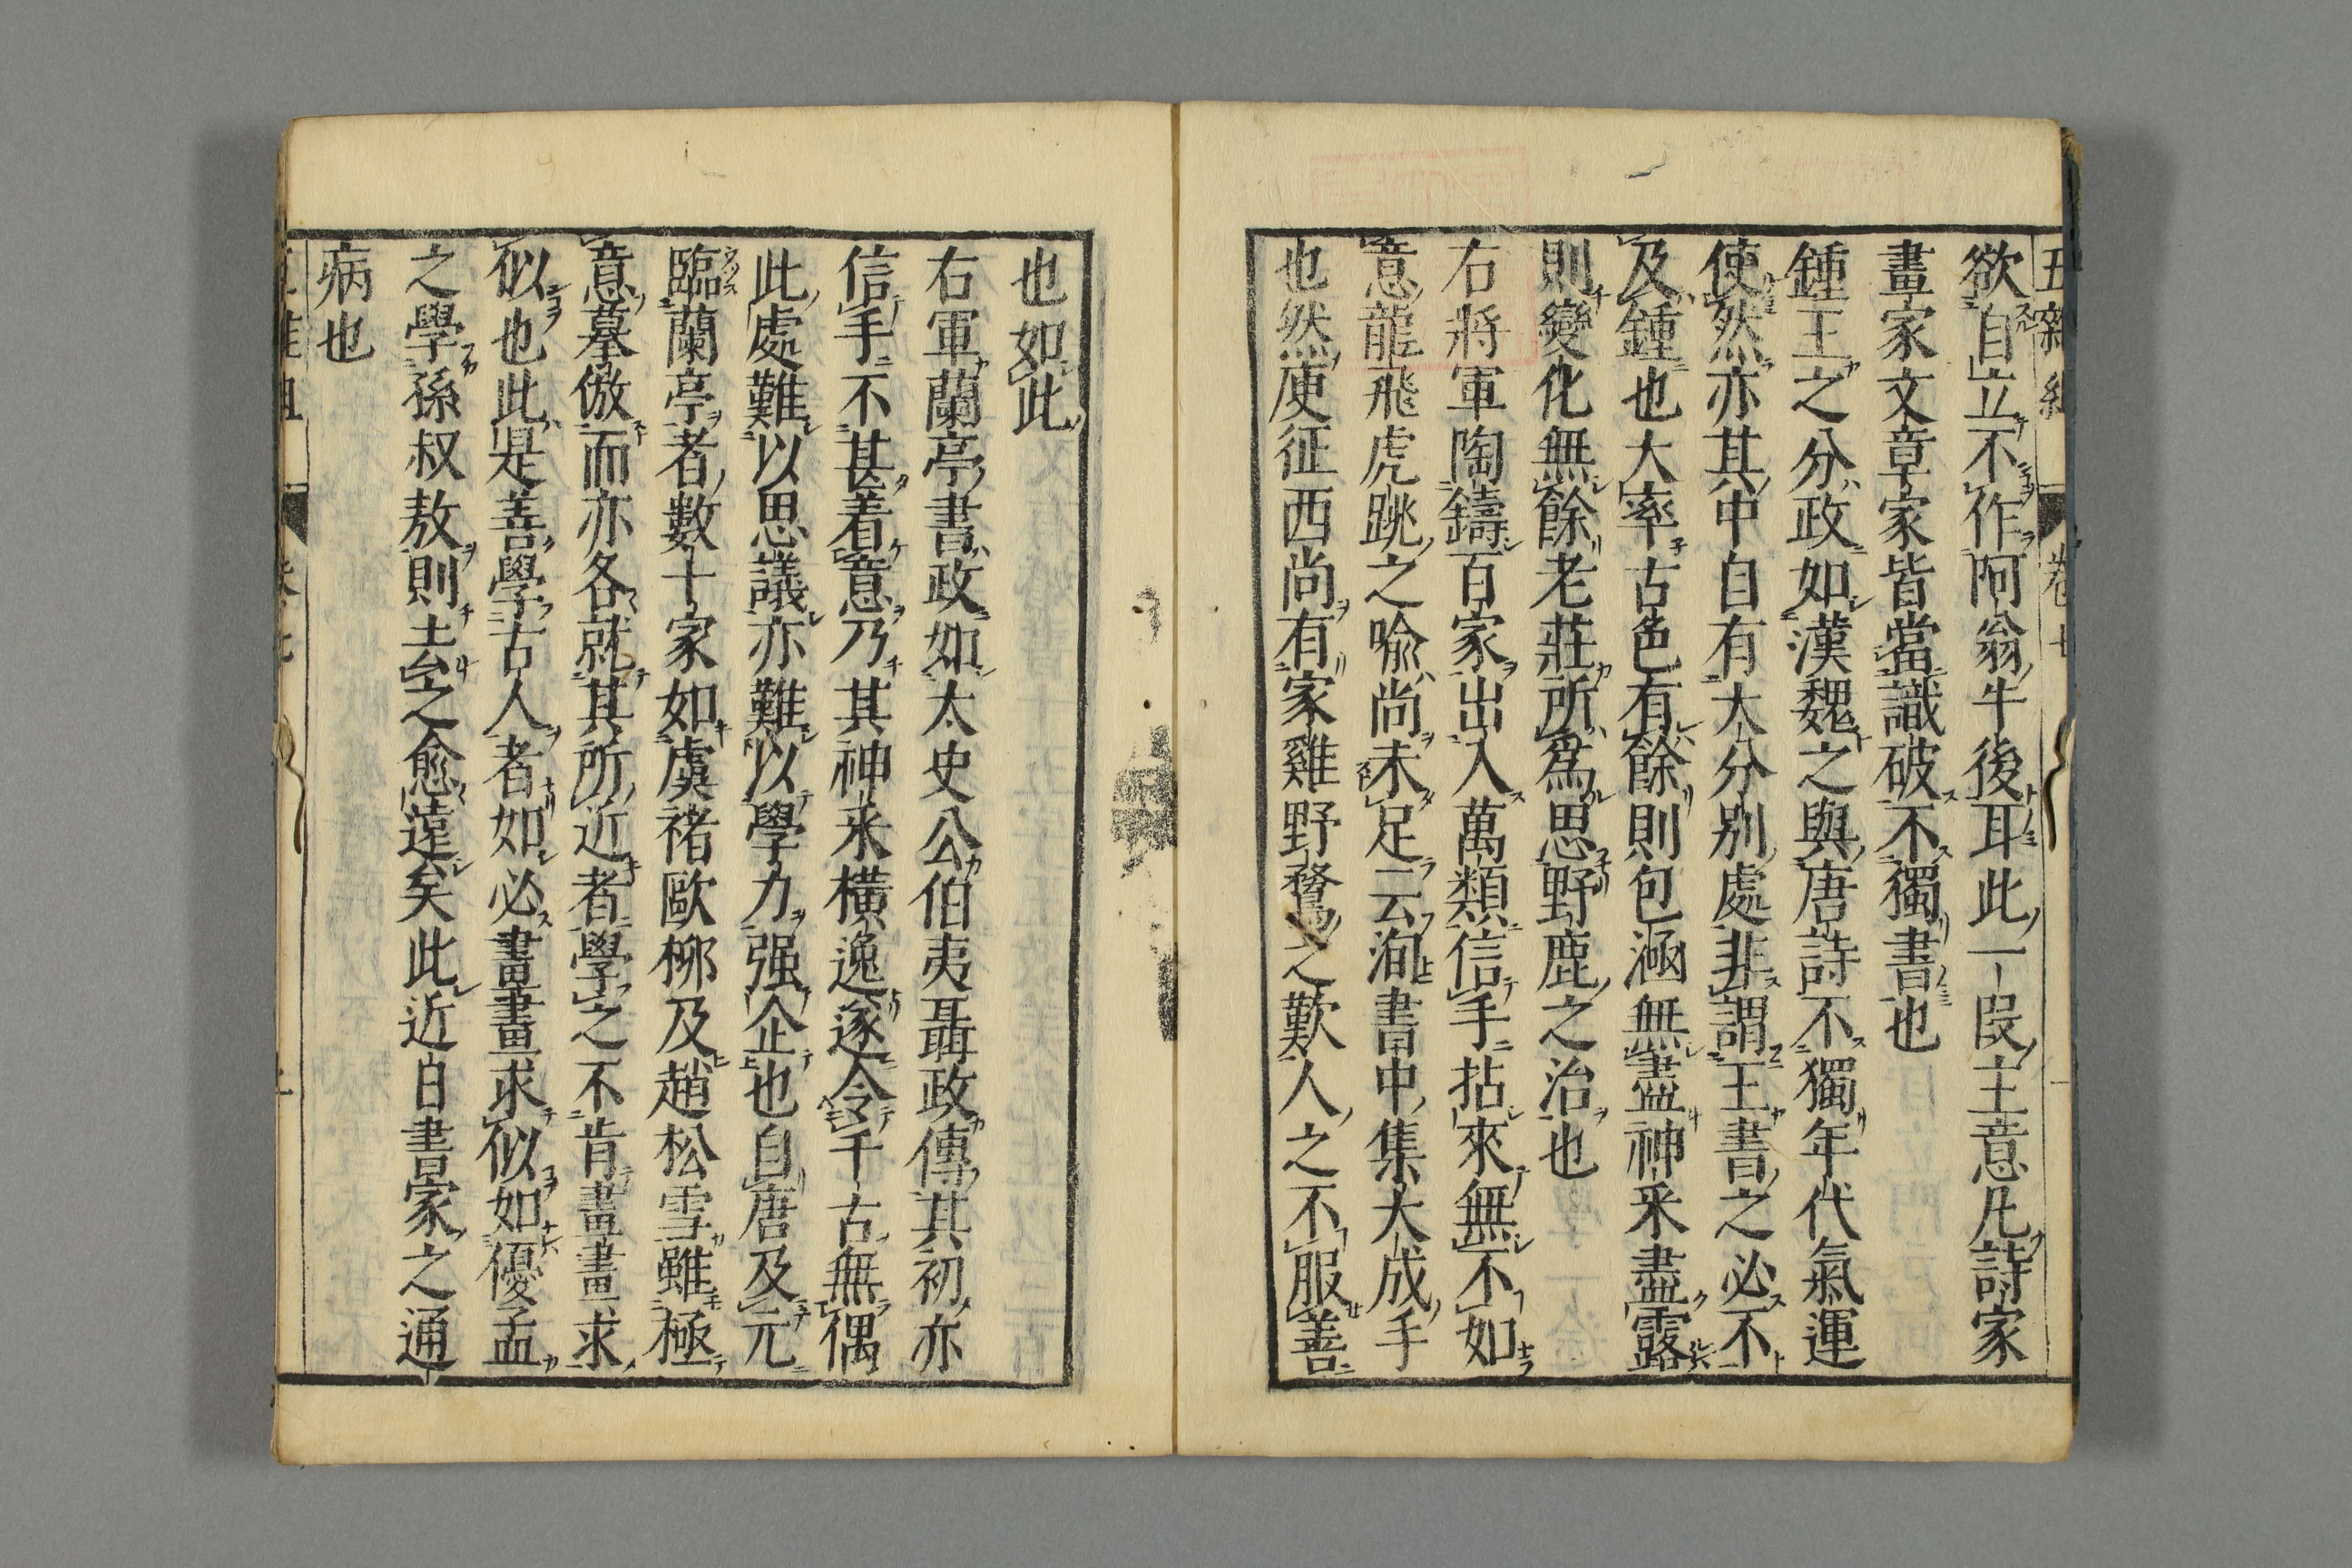 欲自立不作阿翁牛後耳此一段主意凡詩家
畫家文章家皆當識破不獨書也
鍾王之分政如漢魏之與唐詩不獨年代氣運
使然亦其中自有大分別處非謂王書之必不
及鍾也大率古色有餘則包涵無盡神采盡露
則變化無餘老莊所爲思野鹿之治也
右將軍陶鑄百家出入萬類信手拈來無不如
意龍飛虎跳之喻尚未足云洵書中集大成手
也然庾征西尚有家雞野鶩之歎人之不服善
也如此
右軍蘭亭書政如太史公伯夷聶政傳其初亦
信手不甚着意乃其神采橫逸遂令千古無偶
此處難以思議亦難以學力强企也自唐及元
臨蘭亭者數十家如虞褚歐柳及趙松雪雖極
意摹倣而亦各就其所近者學之不肯畫畫求
似也此是善學古人者如必畫畫求似如優孟
之學孫叔敖則去之愈遠矣此近日書家之通
病也